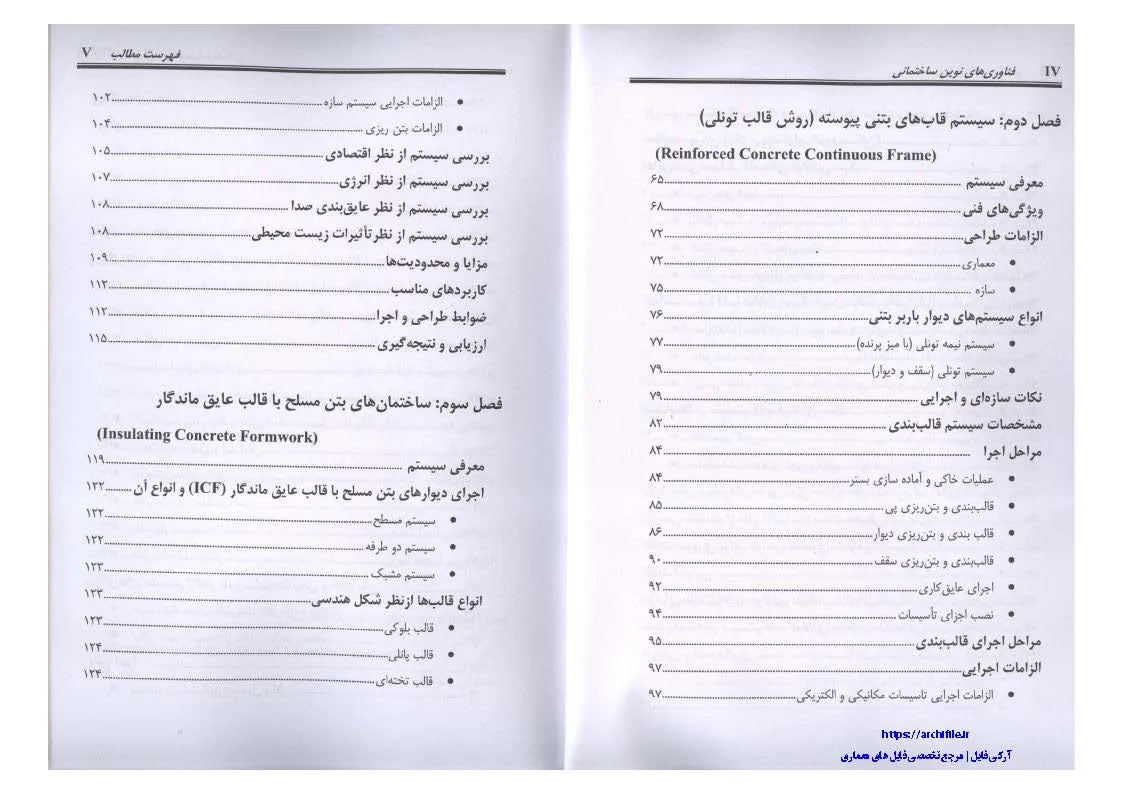 فناوری‌های نوین ساختمانی IV
فصل دوم: سیستم قاب‌های بتنی پیوسته (روش قالب تونلی)
(Reinforced Concrete Continuous Frame)
معرفی سیستم ........ ۶۵
ویژگی‌های فنی ........ ۶۸
الزامات طراحی ........ ۷۲
• معماری ........ ۷۲
• سازه ........ ۷۵
انواع سیستم‌های دیوار باربر بتنی ........ ۷۶
• سیستم نیمه تونلی (با میز پرنده) ........ ۷۷
• سیستم تونلی (سقف و دیوار) ........ ۷۹
نکات سازه‌ای و اجرایی ........ ۷۹
مشخصات سیستم قالب‌بندی ........ ۸۲
مراحل اجرا ........ ۸۴
• عملیات خاکی و آماده سازی بستر ........ ۸۴
• قالب‌بندی و بتن‌ریزی پی ........ ۸۵
• قالب بندی و بتن‌ریزی دیوار ........ ۸۶
• قالب‌بندی و بتن‌ریزی سقف ........ ۹۰
• اجرای عایق‌کاری ........ ۹۲
• نصب اجزای تأسیسات ........ ۹۴
مراحل اجرای قالب‌بندی ........ ۹۵
الزامات اجرایی ........ ۹۷
• الزامات اجرایی تاسیسات مکانیکی و الکتریکی ........ ۹۷
https://archifile.ir
آرکی فایل | مرجع تخصصی فایل های معماری
فهرست مطالب V
• الزامات اجرایی سیستم سازه ........ ۱۰۲
• الزامات بتن ریزی ........ ۱۰۴
بررسی سیستم از نظر اقتصادی ........ ۱۰۵
بررسی سیستم از نظر انرژی ........ ۱۰۷
بررسی سیستم از نظر عایق‌بندی صدا ........ ۱۰۸
بررسی سیستم از نظر تأثیرات زیست محیطی ........ ۱۰۸
مزایا و محدودیت‌ها ........ ۱۰۹
کاربردهای مناسب ........ ۱۱۲
ضوابط طراحی و اجرا ........ ۱۱۲
ارزیابی و نتیجه‌گیری ........ ۱۱۵
فصل سوم: ساختمان‌های بتن مسلح با قالب عایق ماندگار
(Insulating Concrete Formwork)
معرفی سیستم ........ ۱۱۹
اجرای دیوارهای بتن مسلح با قالب عایق ماندگار (ICF) و انواع آن ........ ۱۲۲
• سیستم مسطح ........ ۱۲۲
• سیستم دو طرفه ........ ۱۲۲
• سیستم مشبک ........ ۱۲۳
انواع قالب‌ها ازنظر شکل هندسی ........ ۱۲۳
• قالب بلوکی ........ ۱۲۳
• قالب پانلی ........ ۱۲۴
• قالب تخته‌ای ........ ۱۲۴